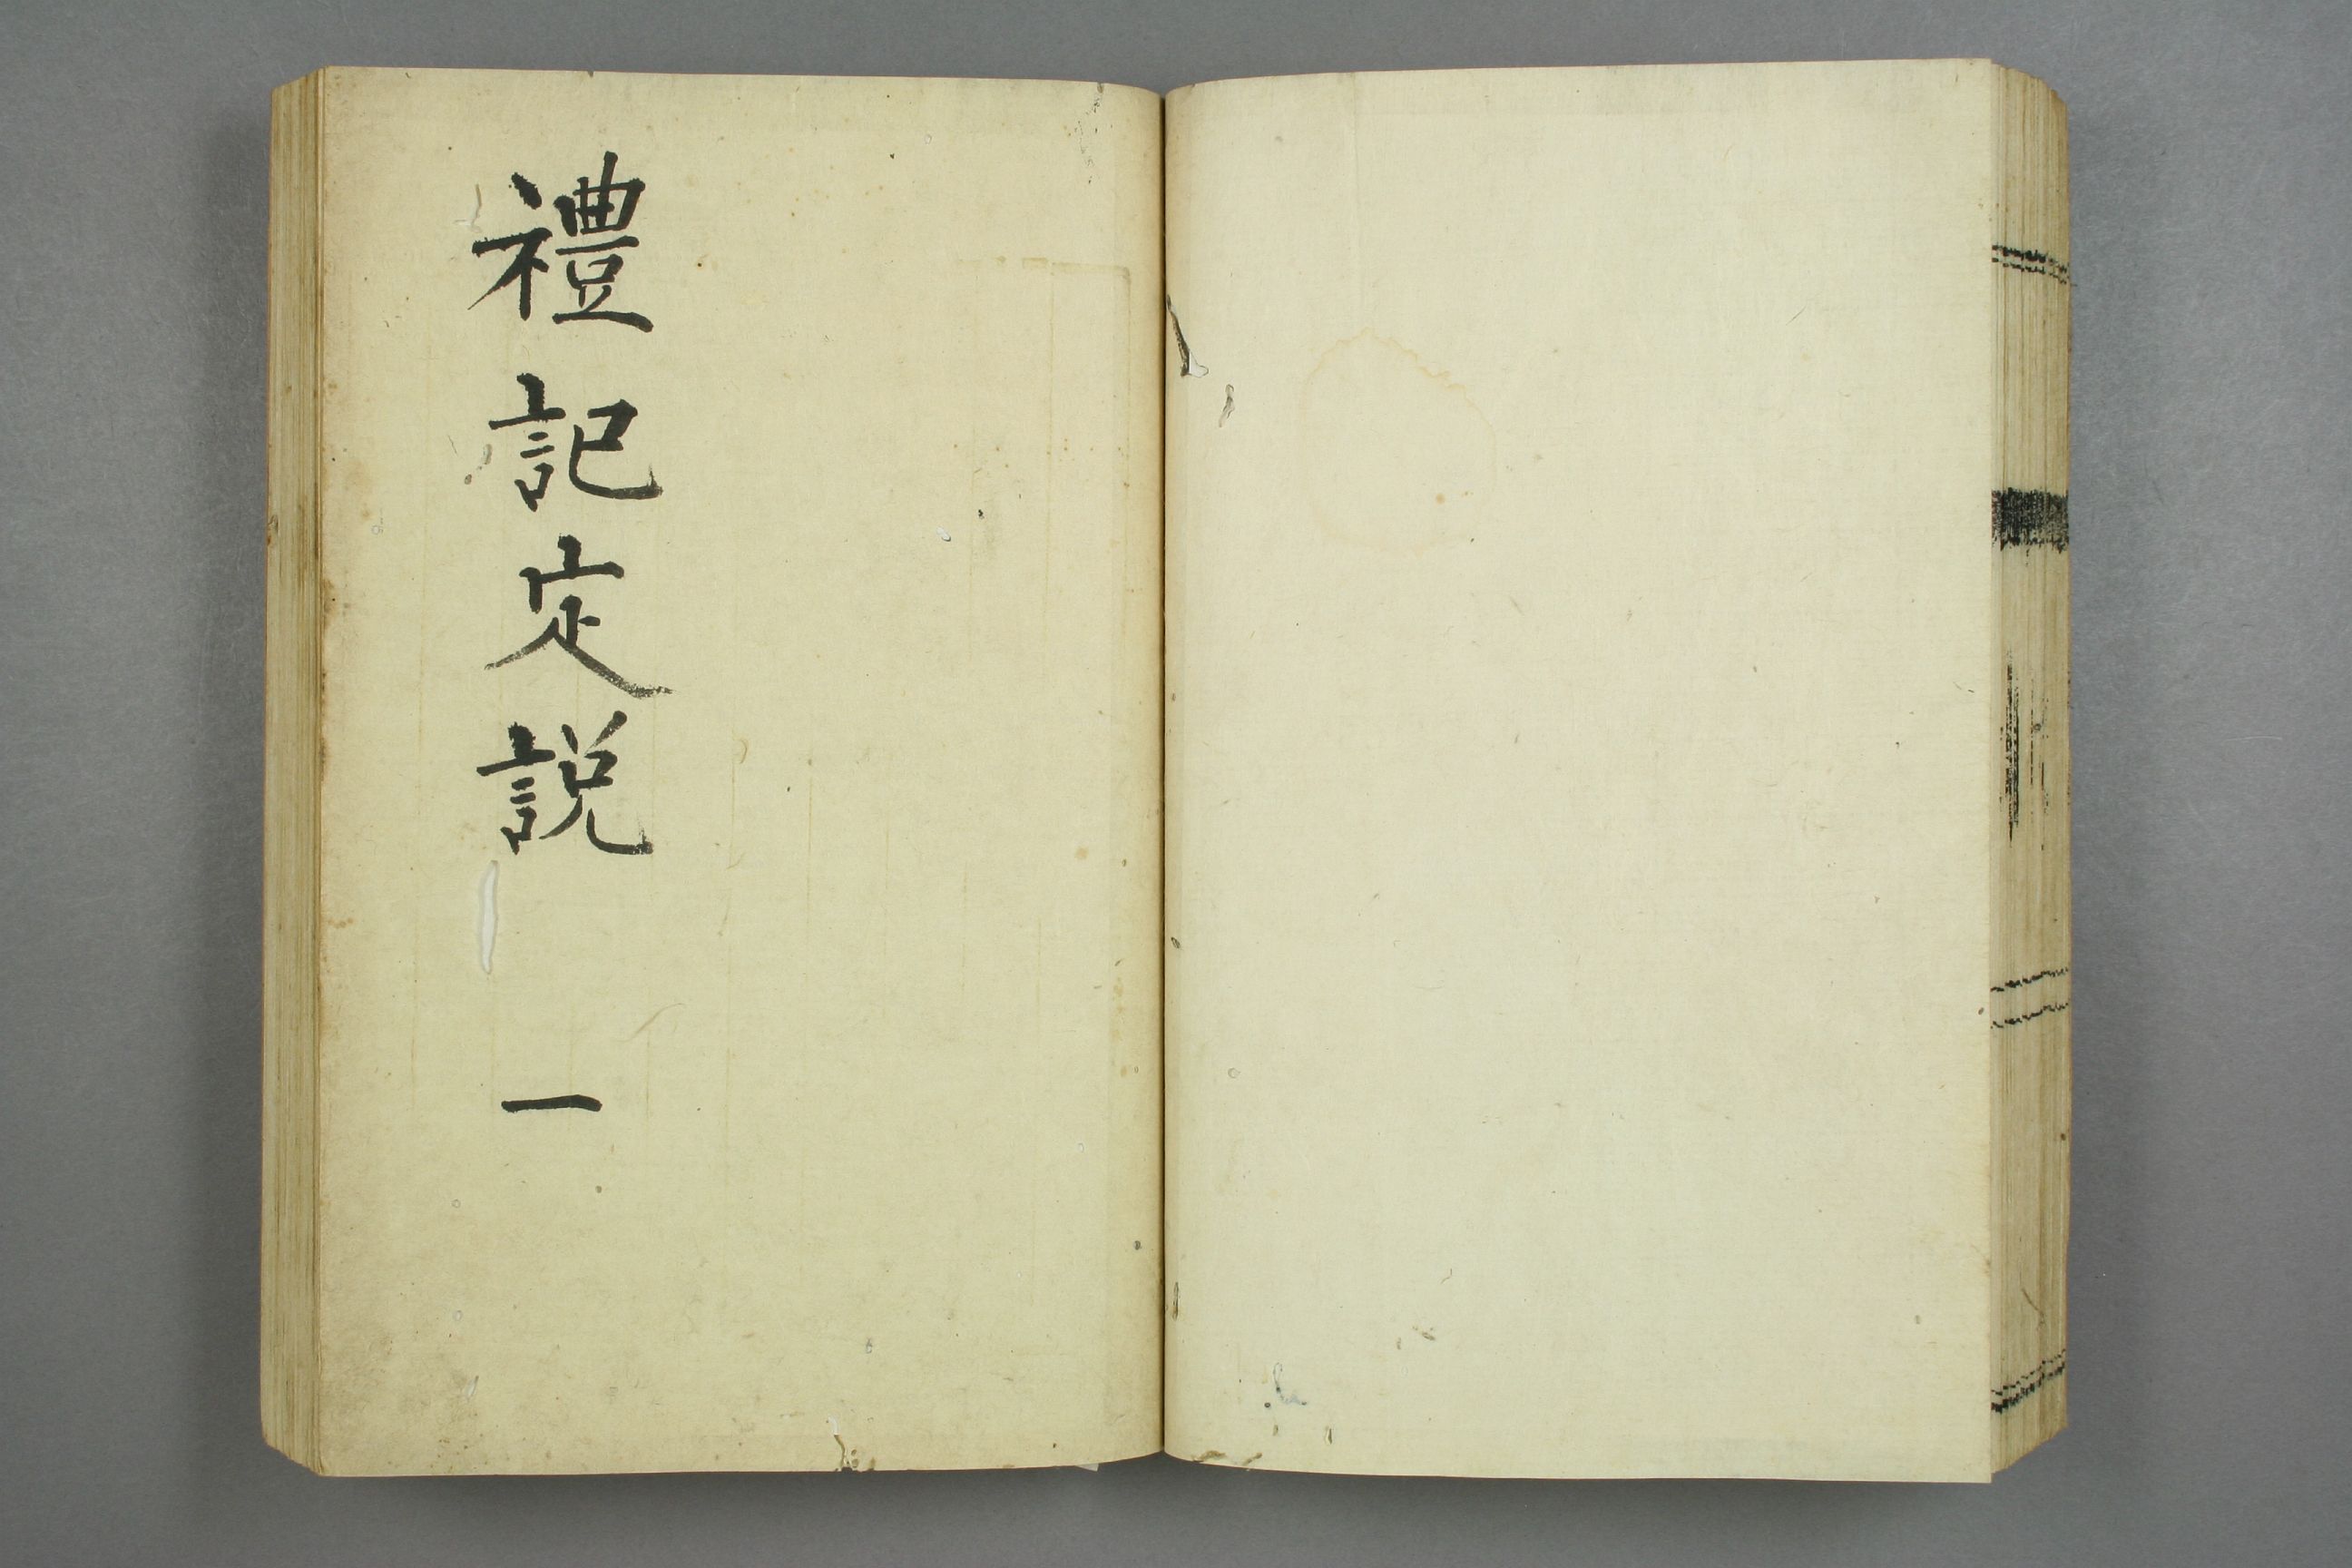 禮記定説 一